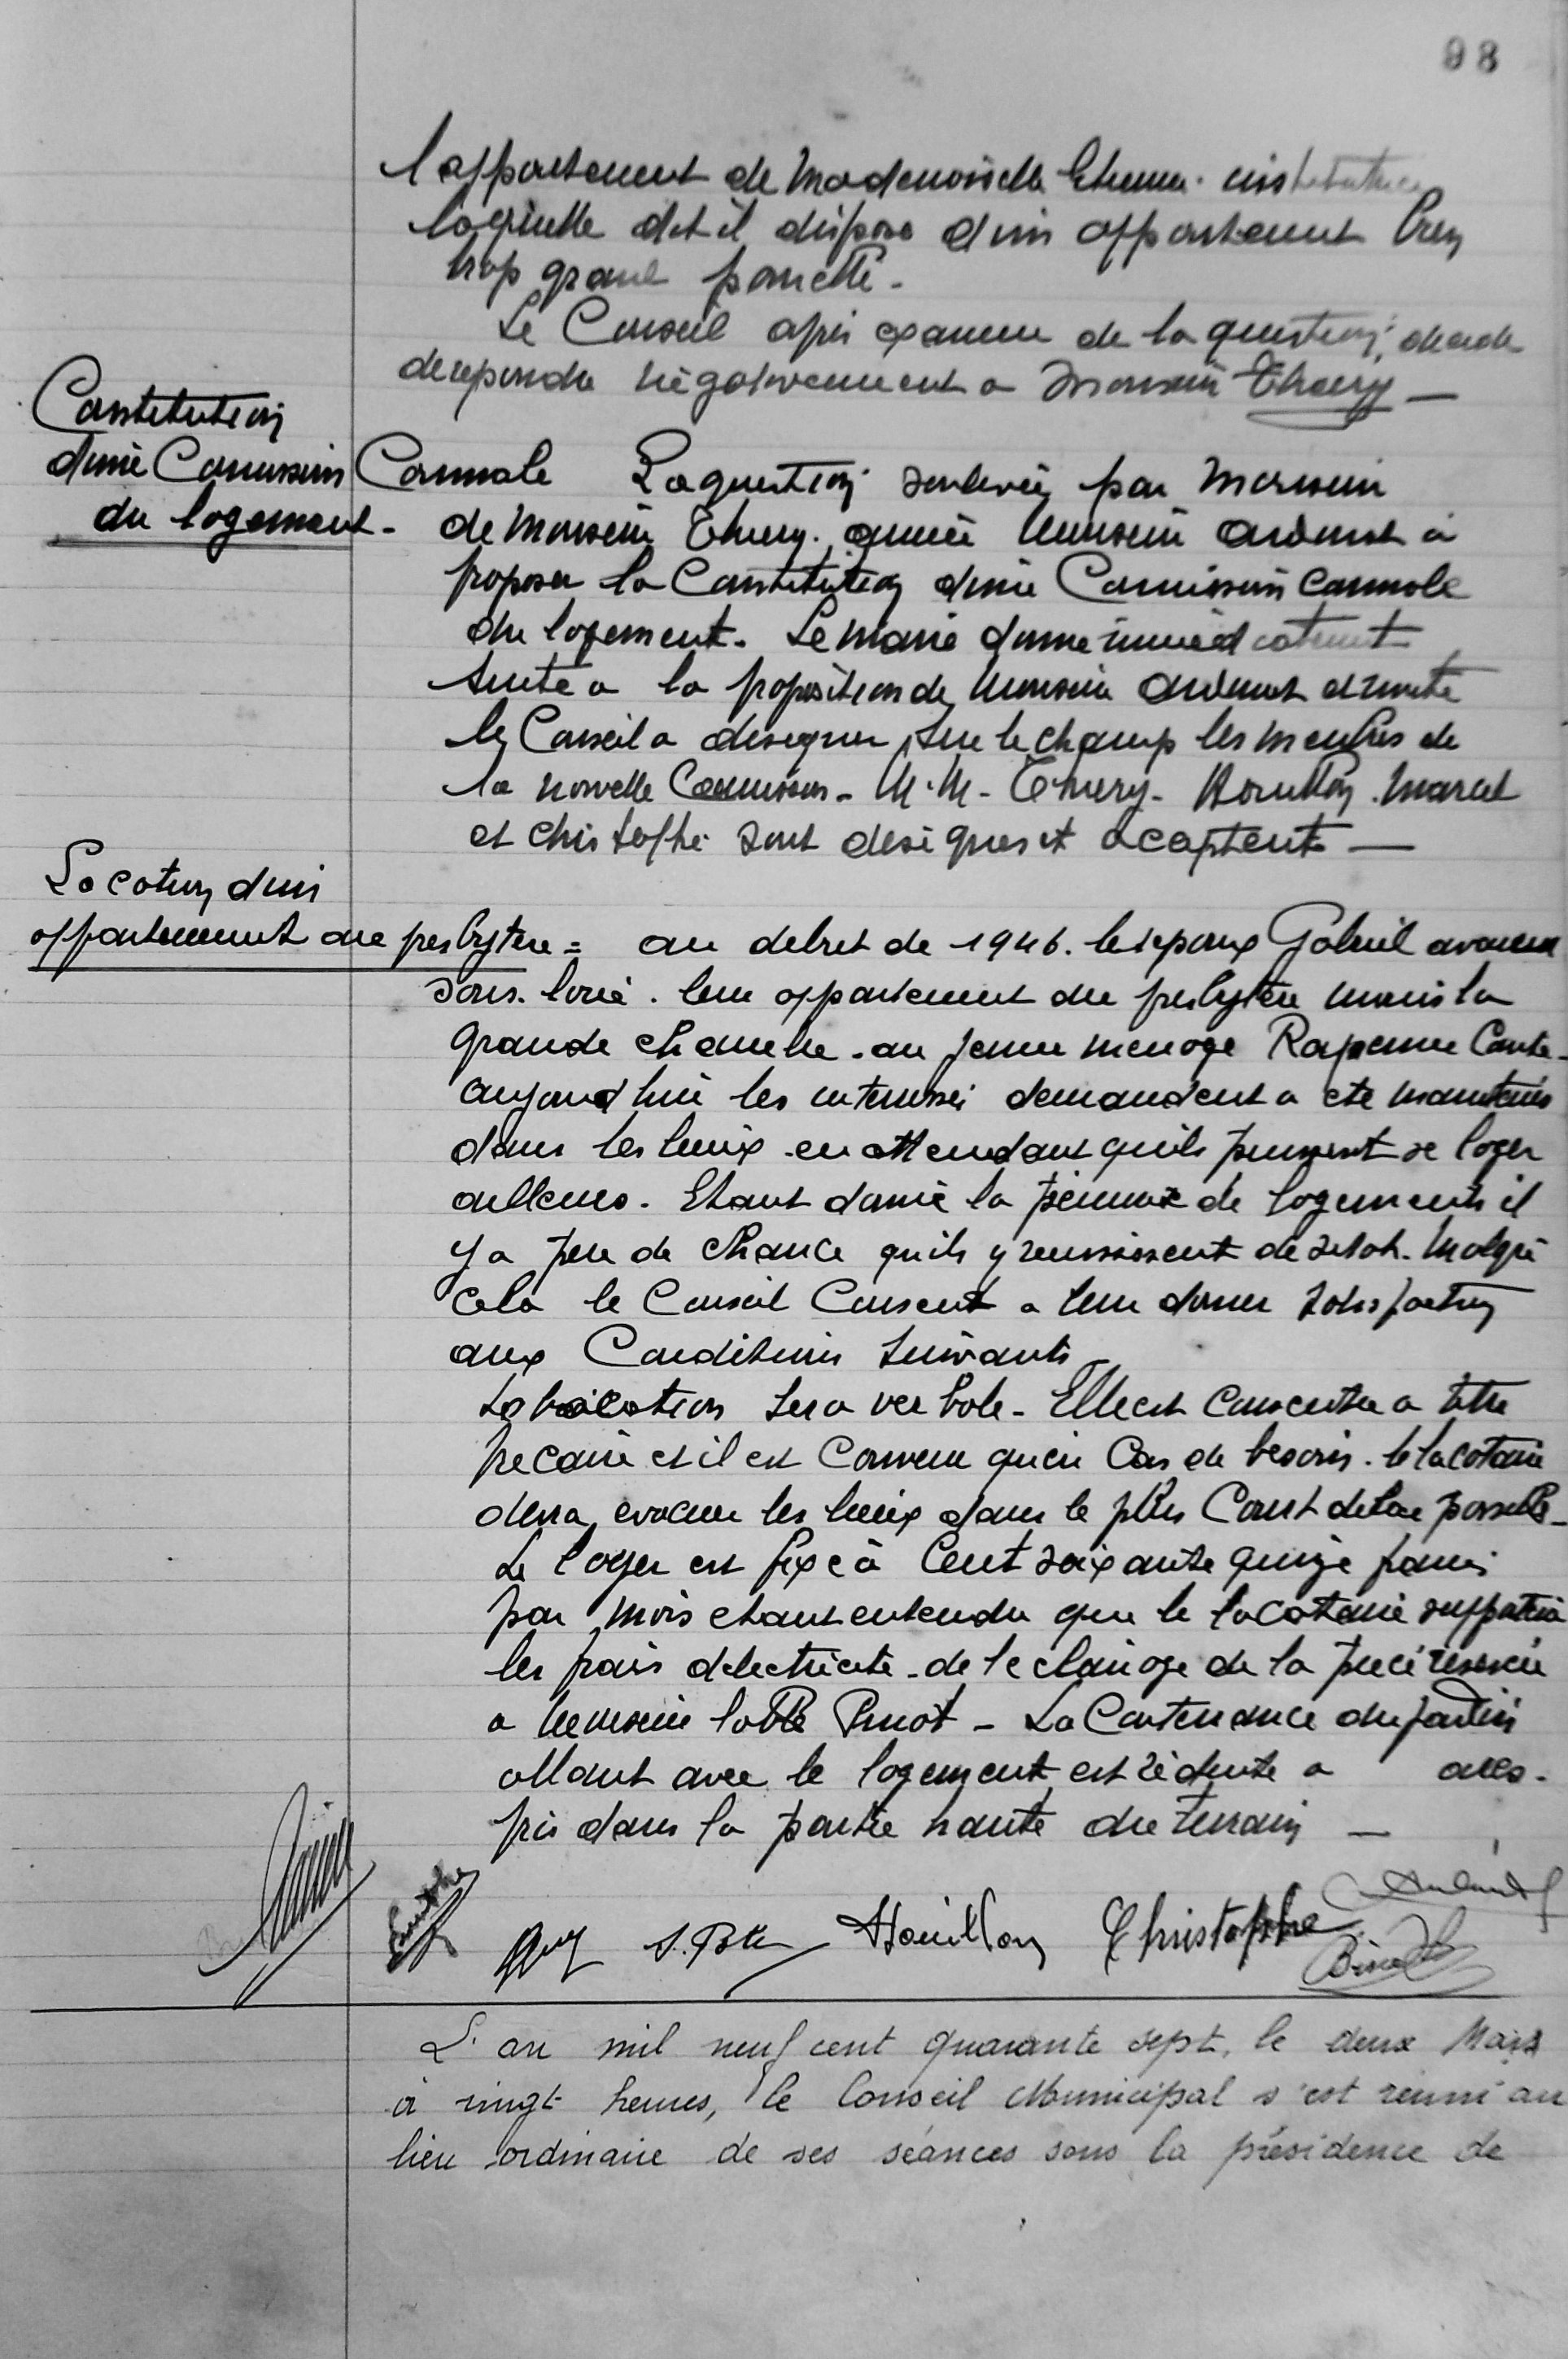 98
l'appartement de Mademoiselle institutrice
laquelle dit il dispose d'un appartement bien
trop grand pour elle -
Le Conseil après examen de la question, décide
de repondre négativement a Monsieur Thiery -
Constitution
d'une Commission Cannale La question soulevée par Monsieur
du logement - de Monsieur Thiery. amène Monsieur à
proposer la Constitution d'une Commission Cannale
du logement. Le Maire donne immédiatement
suite a la proposition de Monsieur et invite
le Conseil a designer sur le champ les membres de
la nouvelle Commission - M.M - Thiery - Houillon. Marcel
et Christophe sont designes et acceptent -
Location d'un
appartement au presbytère = au debut de 1946. les epoux Gabriel avaient
sous-loué. leur appartement du presbytère moins la
grande chambre. au jeune menage Rapenne
aujourd'hui les interessés demandent a etre maintenus
dans les lieux en attendant qu'ils puissent se loger
ailleurs. Etant donné la penurie de logements il
y a peu de chance qu'ils y reussissent de sitot. Malgré
cela le Conseil Consent a leur donner satisfaction
aux Conditions suivants
La location sera verbale - Elle est consentie a titre
precaire et il est Convenu qu'en Cas de besoin. le locataire
devra evacuer les lieux dans le plus Court delai possible -
Le loyer est fixé à Cent soixante quinze francs
par mois etant entendu que le locataire supportera
les frais d'electricité - de l'eclairage de la piece réservée
a Monsieur l'abbé - La Contenance du jardin
allant avec le logement est réduite a ares.
pris dans la partie haute du terrain -
Houillon Christophe
L'an mil neuf cent quarante sept, le deux Mars
à vingt heures, le Conseil Municipal s'est réuni au
lieu ordinaire de ses séances sous la présidence de